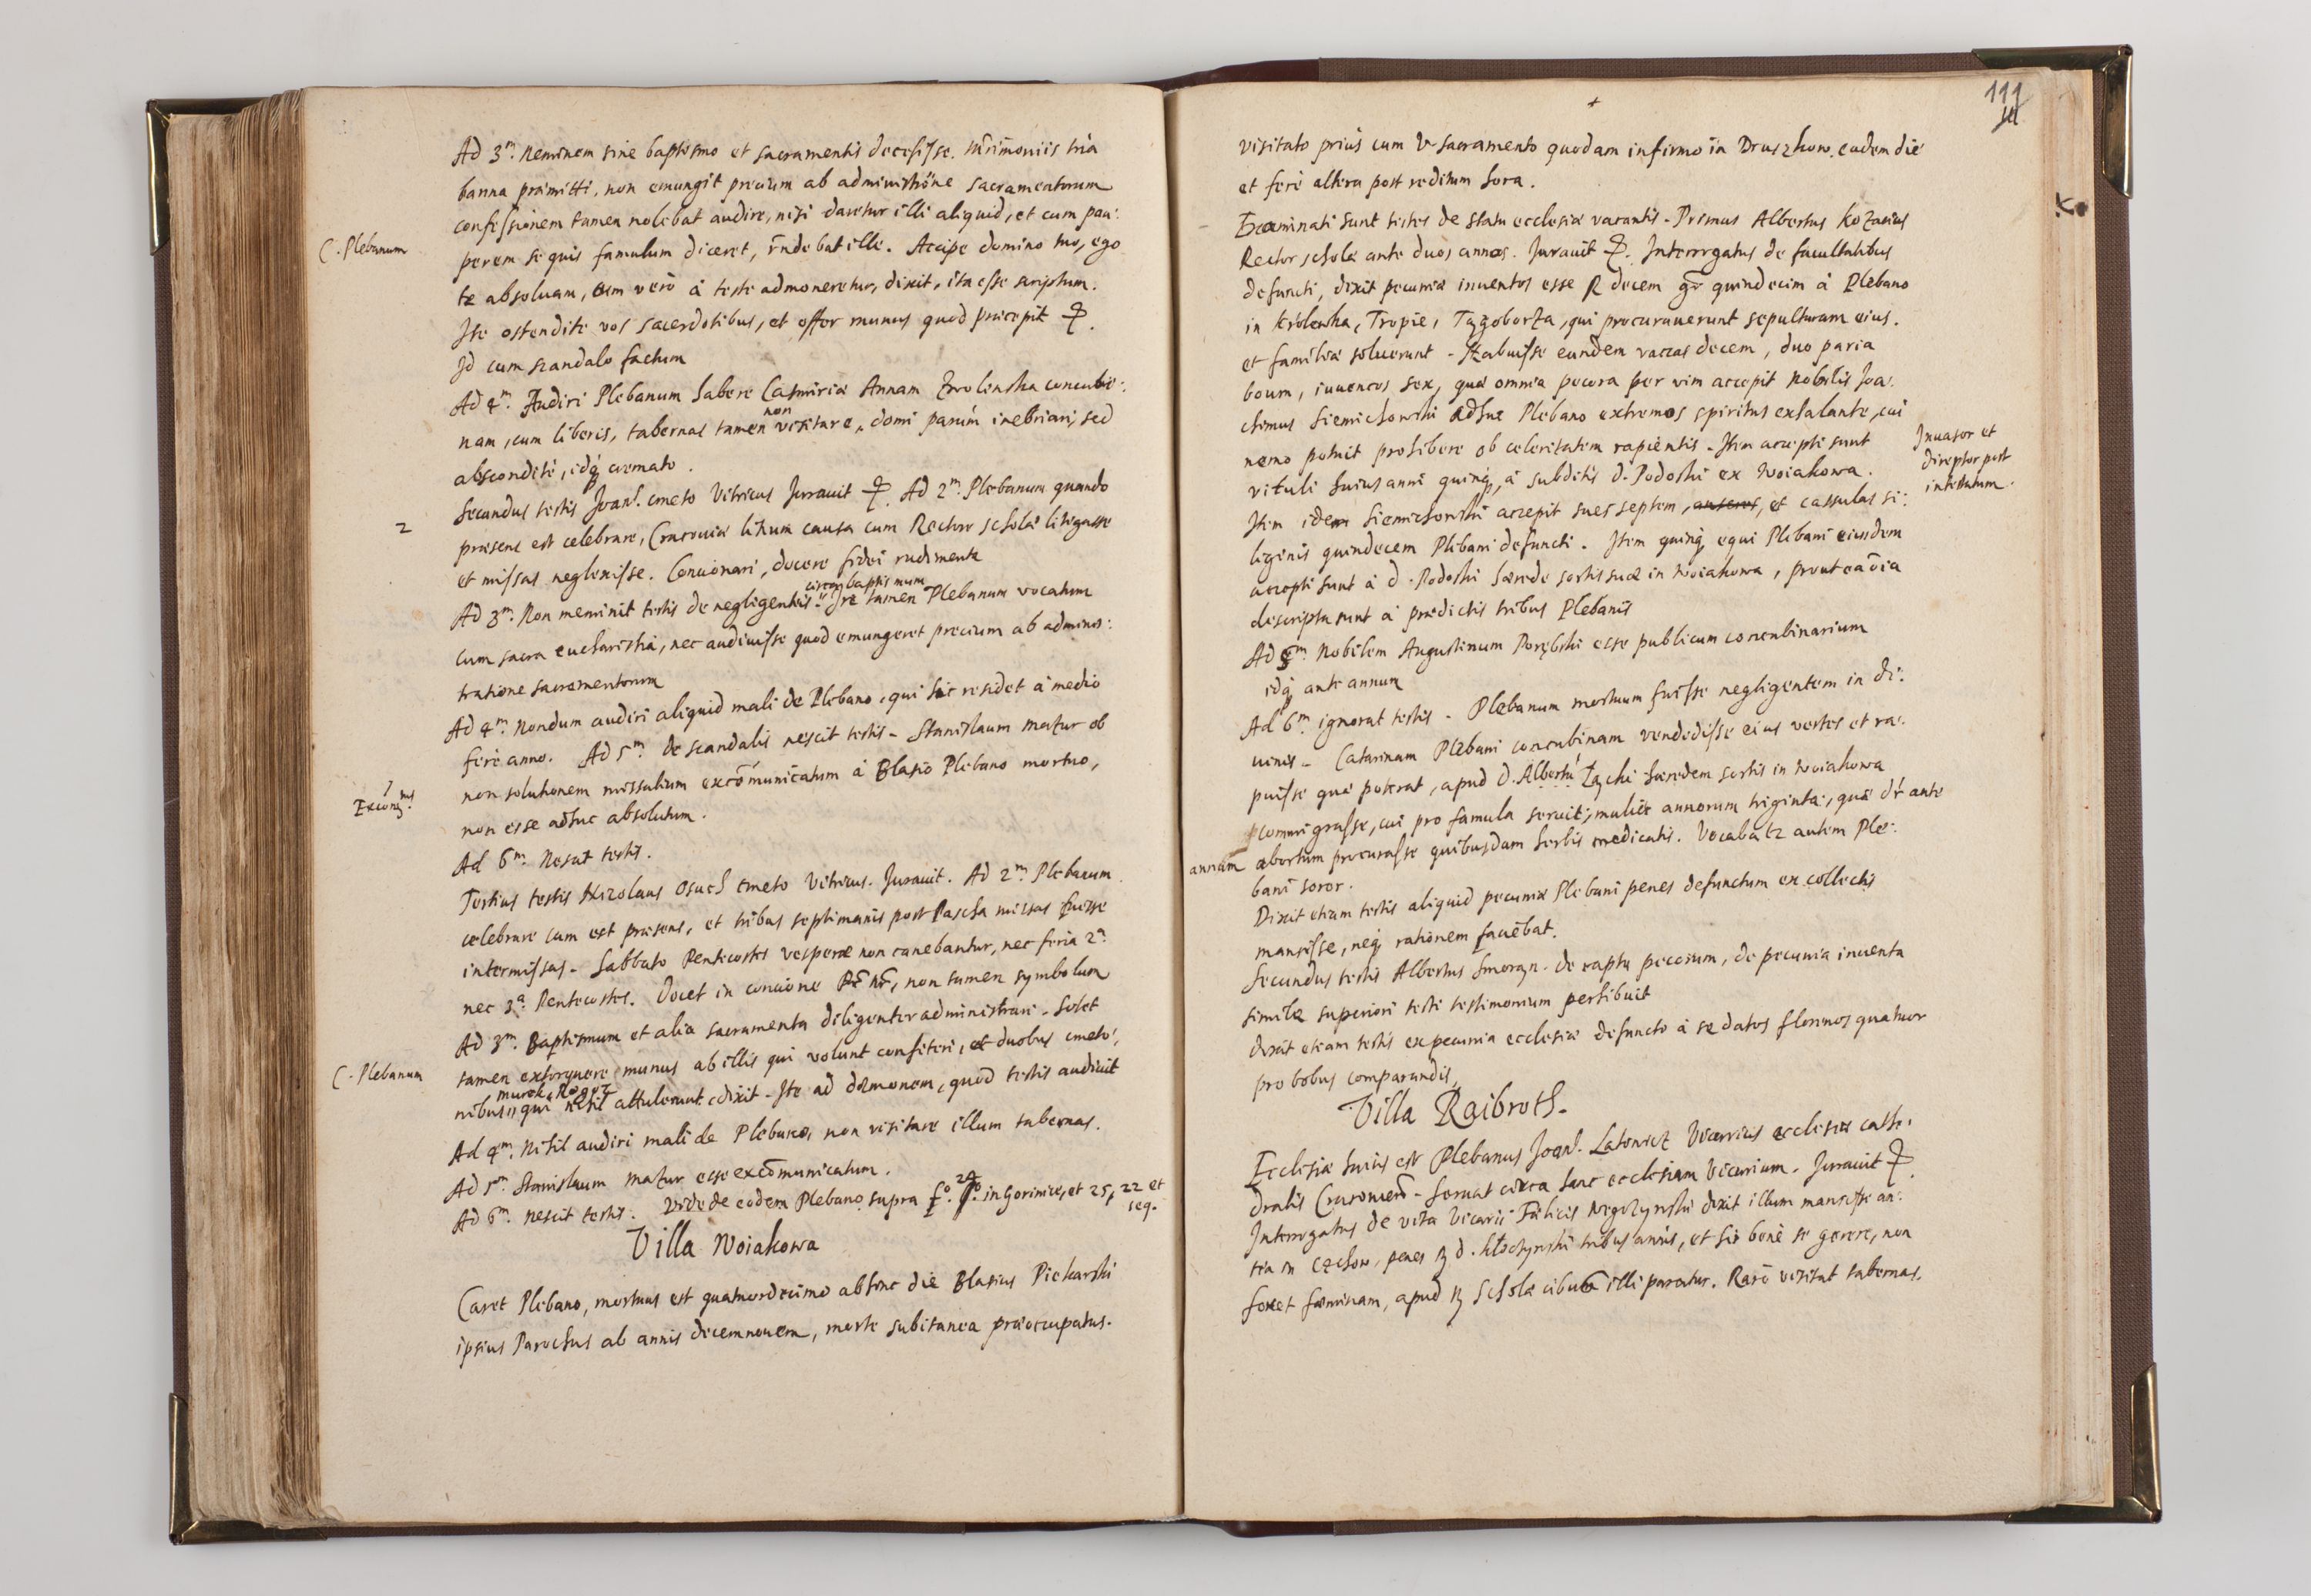 Ad 3m. Neminem sine baptismo et sacramentis decessisse. Mrimoniis tria
banna præmitti, non emungit precium ab administrãone sacramentorum
confessionem tamen nolebat audire, nisi daretur illi aliquid, et cum pau:
C. Plebanum
perem se quis famulum diceret, rñdebat ille. Accipe domino tuo, ego
te absoluam, cum verò à teste admoneretur, dixit, ita esse scriptum.
Ite ostendite vos sacerdotibus, et offer munus quod præcepit
Id cum scandalo factum
Ad 4m. Audiri Plebanum habere Casmiriæ Annam Zwolenska concubi:
nam, cum liberis, tabernas tamen non visitare, domi parum inebriari, sed
absconditè, idq cremato.
2
Secundus testis Joañ. cmeto Vitricus Jurauit. Ad 2m. Plebanum quando
præsens est celebrare, Cracouiæ litium causa cum Rectore scholæ litigasse
et missas neglexisse. Concionari, docere fidei rudimenta
Ad 3m. Non meminit testis de negligentiis circa baptismum. Ire tamen Plebanum vocatum
cum sacra eucharistia, nec audiuisse quod emungeret precium ab adminis:
tratione sacramentorum
Ad 4m. Nondum audiri aliquid mali de Plebano, qui hic residet à medio
ferè anno. Ad 5m. De scandalis nescit testis - Stanislaum Mazur ob
non solutionem missalium excõmunicatum à Blasio Plebano mortuo,
non esse adhuc absolutum.
Ad 6m. Nescit testis.
Tertius testis Nicolaus Osuch cmeto Vitricus. Jurauit. Ad 2m. Plebanum
celebrare cum est præsens, et tribus septimanis post Pascha missas fuisse
intermissas - Sabbato Pentecostes vesperæ non canebantur, nec feria 2a
nec 3a. Pentecostes. Docet in concione Pr̃ nr̃, non tamen symbolum
Ad 3m. Baptismum et alia sacramenta diligenter administrari - Solet
C. Plebanum
tamen extorquere munus ab illis qui volunt confiteri, et duobus cmeto:
nibus, qui nihil attulerunt dixit - Ite ad dæmonem, quod testis audiuit
Ad 4m. Nihil audiri mali de Plebano, non visitare illum tabernas.
Ad 5m. Stanislaum Mazur esse excõmunicatum.
Ad 6m. Nescit testis. Vide de eodem Plebano supra fo. 24 in Gorinice, et 25, 22 et
seq.
Villa Woiakowa
Caret Plebano, mortuus est quatuordecimo abhinc die Blasius Piekarski
ipsius Parochus ab annis decemnouem, morte subitanea præoccupatus.
111
visitato prius cum V. sacramento quodam infirmo in Druszkow, eadem die
et ferè altera post reditum hora.
Examinati sunt testes de statu ecclesiæ vacantis - Primus Albertus Kozarius
Rector scholæ ante duos annos. Jurauit. Interrogatus de facultatibus
defuncti, dixit pecuniæ inuentos esse R decem gr̃ quindecim à Plebano
in Krolewka, Tropie, Tęgoborza, qui procurauerunt sepulturam eius,
et familiæ soluerunt - Habuisse eundem vaccas decem, duo paria
boum, iuuencos sex, quæ omnia pecora per vim accepit Nobilis Joa:
chimus Siemichowski adhuc Plebano extremos spiritus exhalante, cui
nemo potuit prohibere ob celeritatem rapientis - Item accepti sunt
vituli huius anni quinq, à subditis D. Rodoski ex Woiakowa.
Inuasor et
direptor post
intestatum.
Item idem Siemichowski accepit sues septem, anseres, et cassulas si:
liginis quindecem Plebani defuncti. Item quinq equi Plebani eiusdem
accepti sunt à D. Rodoski hærede sortis suæ in Woiakowa, prout ea oĩa
descripta sunt à prædictis tribus Plebanis
Ad 5m. Nobilem Augustinum Porębski esse publicum concubinarium
idq ante annum
Ad 6m. ignorat testis - Plebanum mortuum fuisse negligentem in di:
uinis - Catarinam Plebani concubinam vendidisse eius vestes et ra:
puisse quæ poterat, apud D. Albertũ Łącki hæredem sortis in Woiakowa
commigrasse, cui pro famula seruit; mulier annorum triginta, quæ dr̃ ante
annum abortum procurasse quibusdam herbis medicatis. Vocabatr autem Ple:
bani soror.
Dixit etiam testis aliquid pecuniæ Plebani penes defunctum ex collectis
mansisse, neq rationem faciebat.
Secundus testis Albertus Smorzn. de raptu pecorum, de pecunia inuenta
simile superiori testi testimonium perhibuit
Dixit etiam testis ex pecunia ecclesiæ defuncto à se datos florenos quatuor
pro bobus comparandis,
Villa Raibroth.
Ecclesiæ huius est Plebanus Joañ. Latowicz Vicarius ecclesiæ cathe:
dralis Cracouieñ - Seruat circa hanc ecclesiam Vicarium - Jurauit
Interrogatus de vita Vicarii Fælicis Negoszynski dixit illum mansisse an:
tea in Czchow, penes R. D. Kłoczynski tribus annis, et hic benè se gerere, non
fouet fæminam, apud R. Scholæ cibus illi paratur. Rarò visitat tabernas.